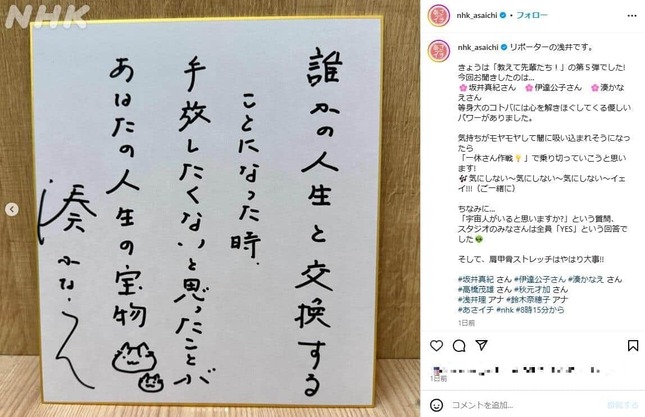 NHK
誰かの人生と交換する
ことになった時、
手放したくないと思ったことが
あなたの人生の宝物
湊かなえ
nhk_asaichi • フォロー
nhk_asaichi リポーターの浅井です。
きょうは「教えて先輩たち！」の第５弾でした!
今回お聞きしたのは...
🌸坂井真紀さん 🌸伊達公子さん 🌸湊かな
えさん
等身大のコトバには心を解きほぐしてくる優しい
パワーがありました。
気持ちがモヤモヤして闇に吸い込まれそうになっ
たら
「一休さん作戦💡」で乗り切っていこうと思い
ます!
🎶気にしない〜気にしない〜気にしない〜イェ
イ!!!（ご一緒に）
ちなみに...
「宇宙人がいると思いますか?」という質問、
スタジオのみなさんは全員「YES」という回答で
した👽
そして、肩甲骨ストレッチはやはり大事!!
#坂井真紀 さん #伊達公子さん #湊かなえ さん
#高橋茂雄 さん #秋元才加 さん
#浅井理 アナ #鈴木奈穂子 アナ
#あさイチ #nhk #8時15分から
1日前
1日前
コメントを追加...
投稿する